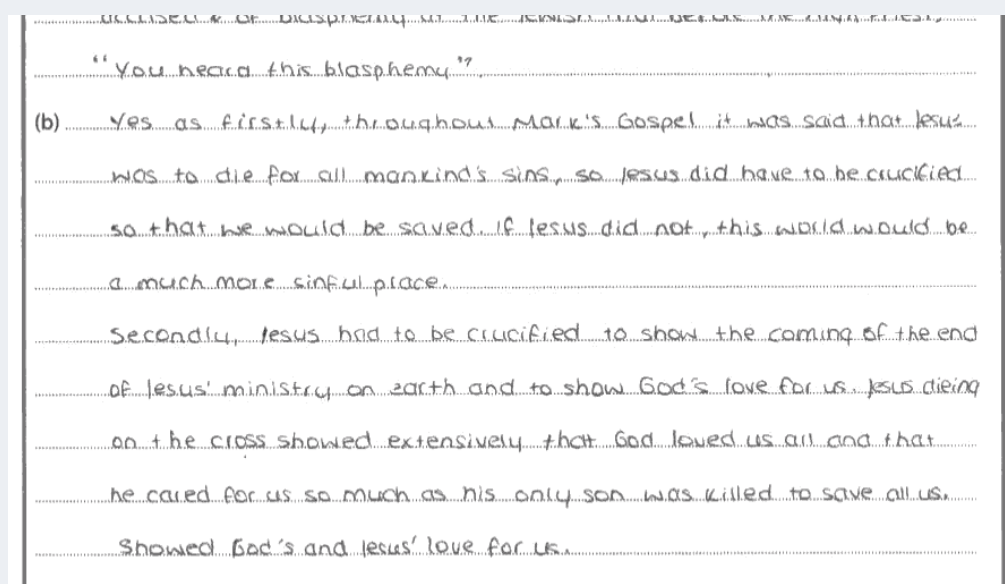 "You heard this blasphemy"?
(b) Yes as firstly, throughout Mark's Gospel it was said that Jesus
was to die for all mankind's sins, so Jesus did have to be crucified
so that we would be saved. If Jesus did not, this world would be
a much more sinful place.
Secondly, Jesus had to be crucified to show the coming of the end
of Jesus' ministry on earth and to show God's love for us. Jesus dieing
on the cross showed extensively that God loved us all and that
he cared for us so much as his only son was killed to save all us.
Showed God's and Jesus' love for us.